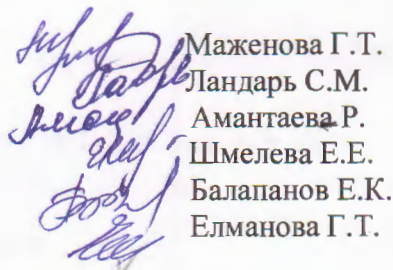 Маженова Г.Т.
Ландарь С.М.
Амантаева Р.
Шмелева Е.Е.
Балапанов Е.К.
Елманова Г.Т.